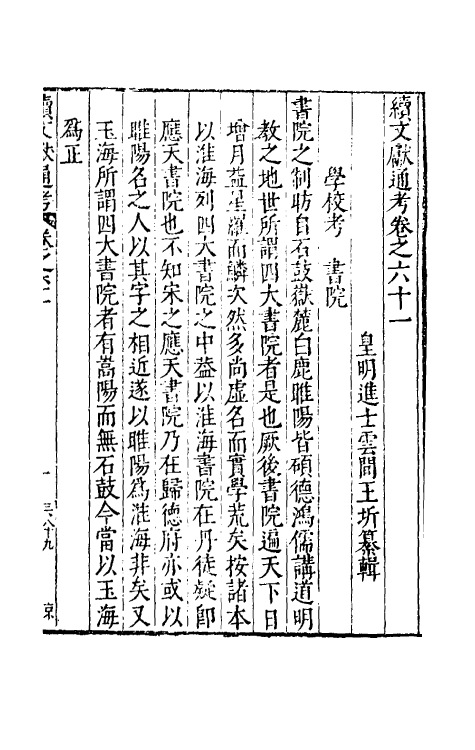 續文獻通考卷之六十一
皇明進士雲間王圻纂輯
學校考　書院
書院之制昉自石鼓嶽麓白鹿睢陽皆碩德鴻儒講道明
教之地世所謂四大書院者是也厥後書院遍天下日
增月益星羅而鱗次然多尚虛名而實學荒矣按諸本
以淮海列四大書院之中葢以淮海書院在丹徒疑卽
應天書院也不知宋之應天書院乃在歸德府亦或以
睢陽名之人以其字之相近遂以睢陽爲淮海非矣又
玉海所謂四大書院者有嵩陽而無石鼓今當以玉海
爲正
續文獻通考 卷之六十一
一
三八十九